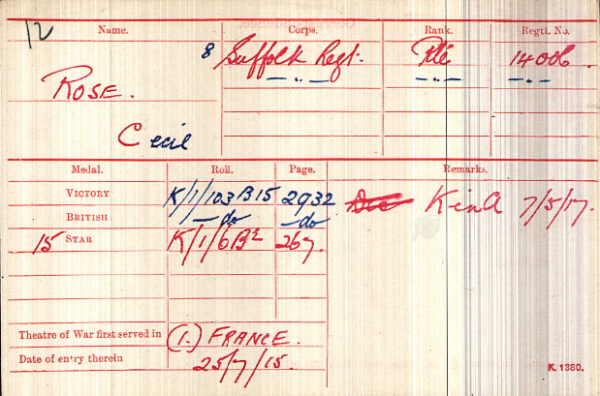 12
Name. Corps. Rank. Regtl. No.
8 Suffolk Regt. Pte 14006.
ROSE. — " — — " — — " —
Cecil
Medal. Roll. Page. Remarks.
VICTORY K/1/103 B15 2932 Kin A 7/5/17.
BRITISH — do — do
15 STAR K/1/6B2 267.
Theatre of War first served in (1.) FRANCE.
Date of entry therein 25/7/15.
K. 1380.